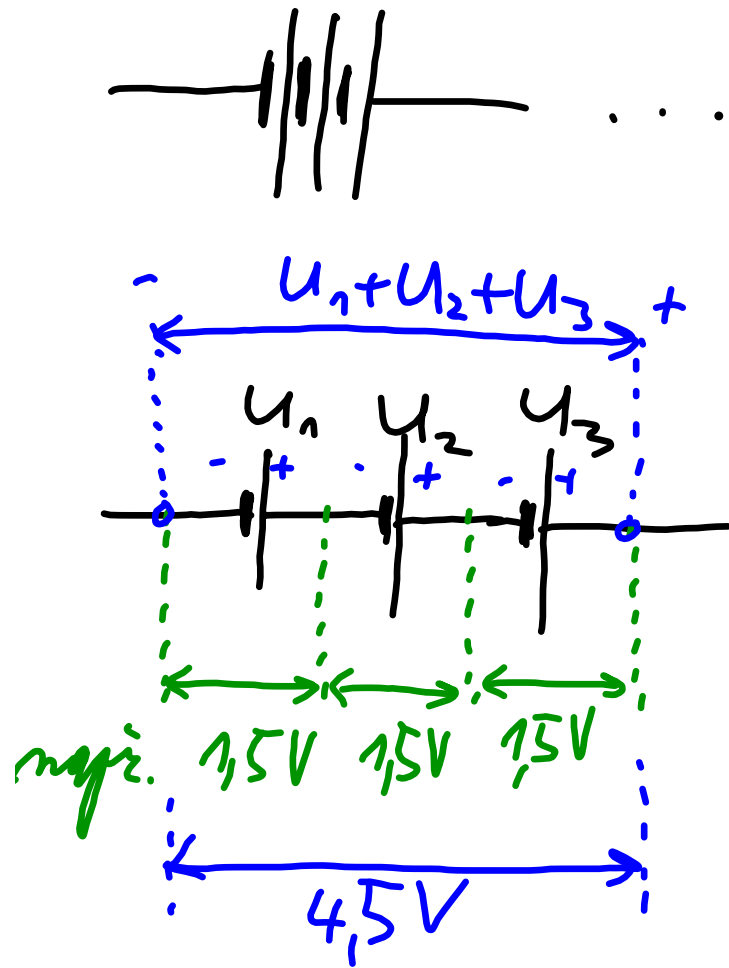 . . .
- U₁+U₂+U₃ +
U₁ U₂ U₃
- + - + - +
např. 1,5V 1,5V 1,5V
4,5V